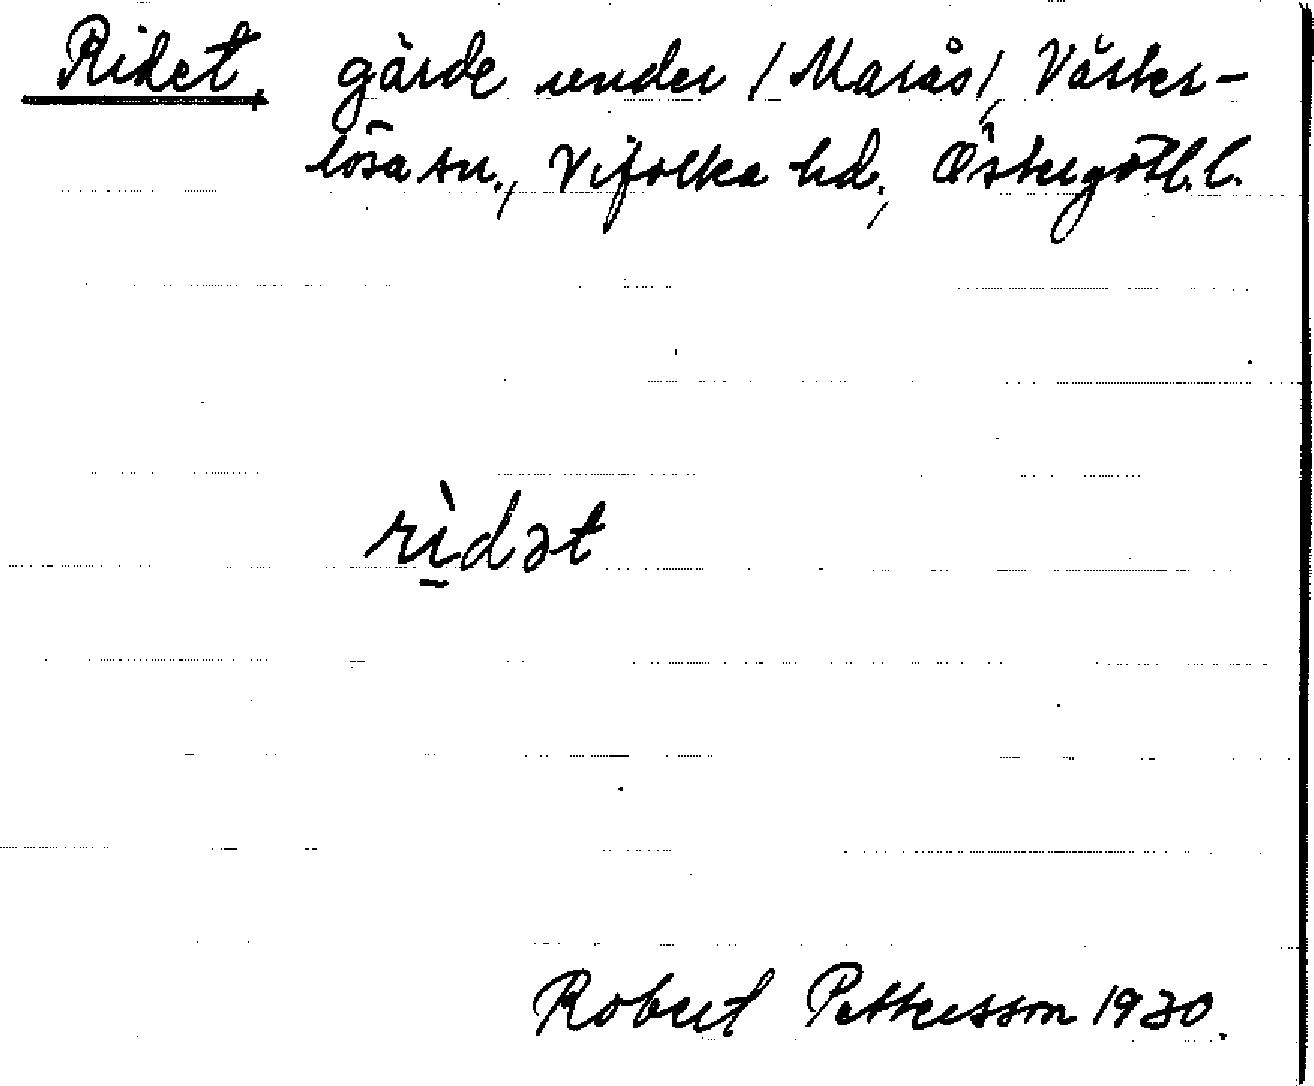 Ridet, gärde under /Marås/, Väster-
lösa sn., Vifolka hd., Östergötl. l.
rìdət
Robert Pettersson 1930.